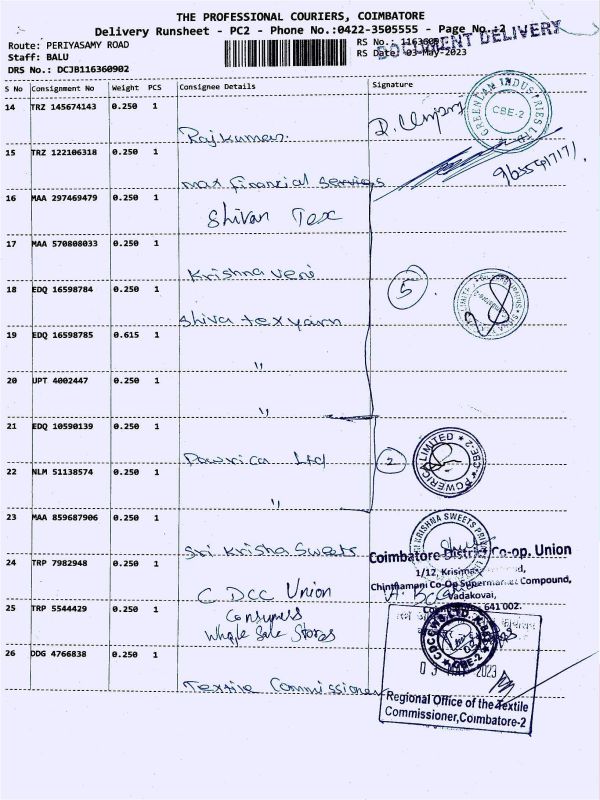 THE PROFESSIONAL COURIERS, COIMBATORE
Delivery Runsheet - PC2 - Phone No.:0422-3505555 - Page No.:2
DOCUMENT DELIVERY
Route: PERIYASAMY ROAD
Staff: BALU
DRS No.: DCJB116360902
RS No.: 1163609
RS Date: 03-May-2023
S No Consignment No Weight PCS Consignee Details Signature
14 TRZ 145674143 0.250 1
Rajkumar.
GREENTAN INDUSTRIES
CBE-2
15 TRZ 122106318 0.250 1
max financial services
16 MAA 297469479 0.250 1
Shivan Tex
17 MAA 570808033 0.250 1
Krishna veni
5
18 EDQ 16598784 0.250 1
Shiva tex yarn
19 EDQ 16598785 0.615 1
"
20 UPT 4002447 0.250 1
"
21 EDQ 10590139 0.250 1
Powrica Ltd
2
POWERICA LIMITED * CBE-2 *
22 NLM 51138574 0.250 1
"
23 MAA 859687906 0.250 1
Sri Krisha Sweets
SRI KRISHNA SWEETS
24 TRP 7982948 0.250 1
C DCC Union
Coimbatore District Co-op. Union
1/12,
Chinthamani Co-Op Supermarket Compound,
Vadakovai,
641 002.
25 TRP 5544429 0.250 1
Consumers
Whole Sale Stores
CBE-2
26 DDG 4766838 0.250 1
Textile Commissioner
03 MAY 2023
Regional Office of the Textile
Commissioner,Coimbatore-2